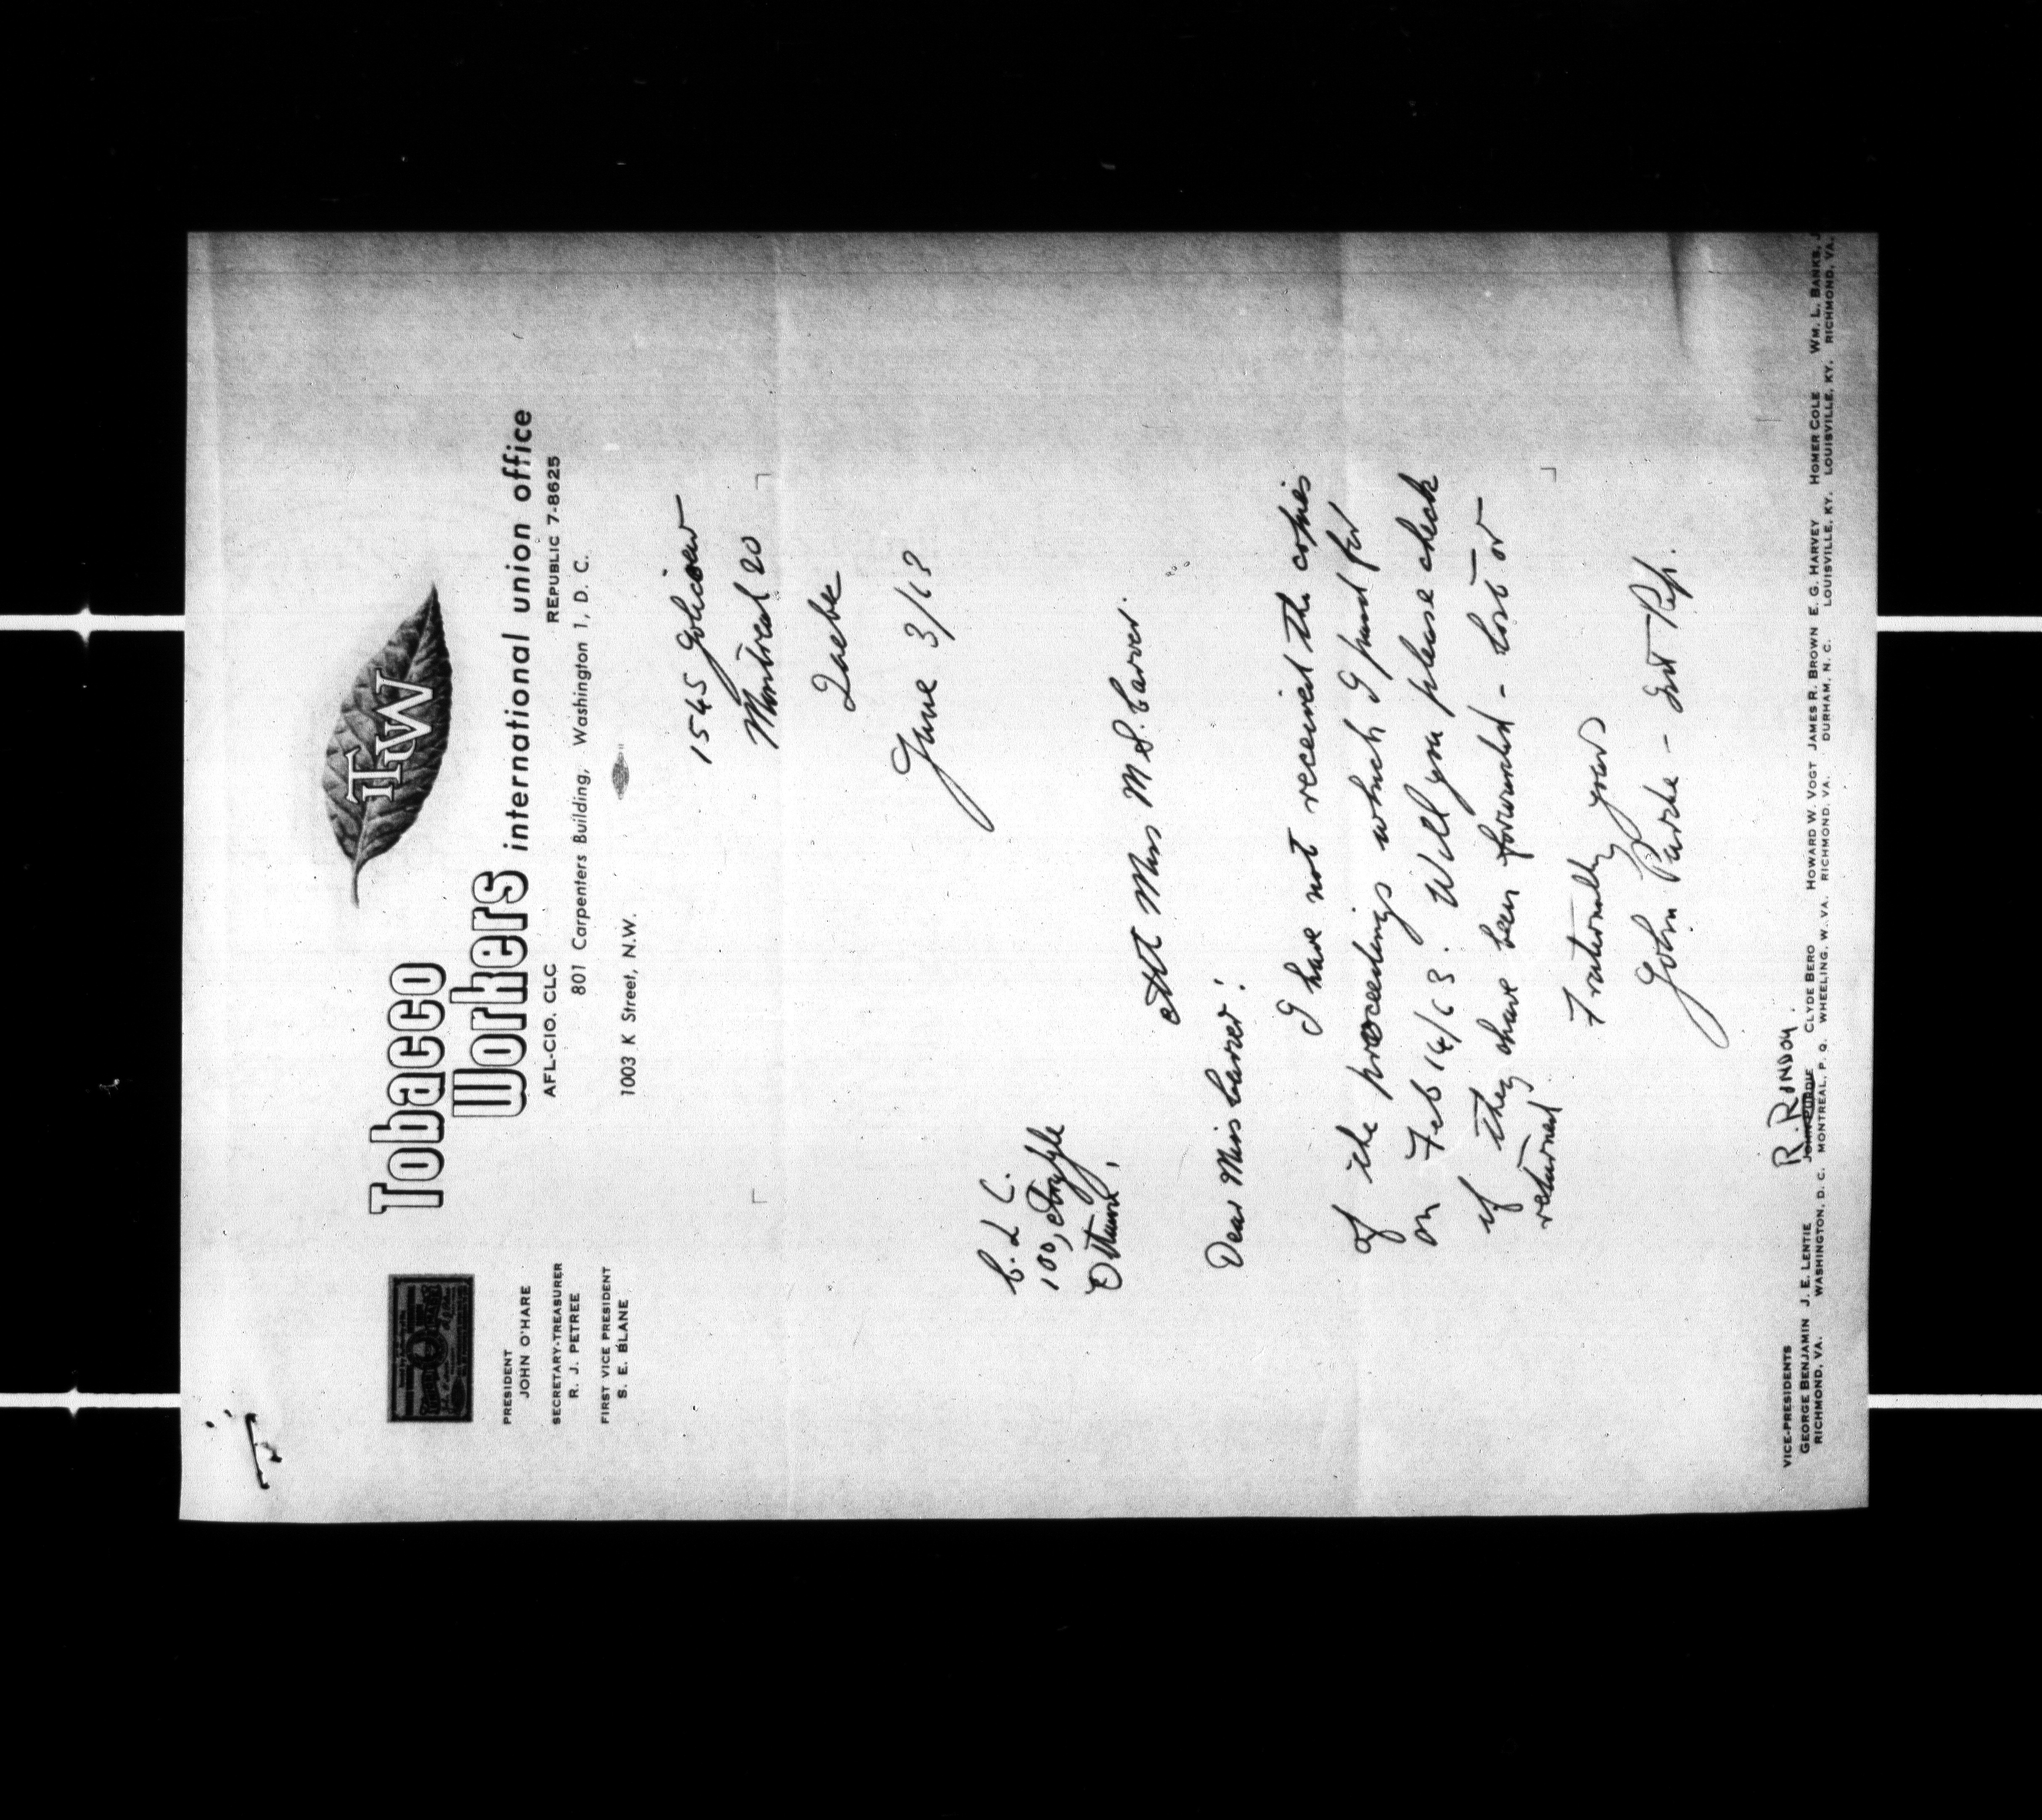 TIW
Tobacco
Workers international union office
AFL-CIO. CLC REPUBLIC 7-8625
801 Carpenters Building, Washington 1, D. C.
1003 K Street, N.W.
PRESIDENT
JOHN O'HARE
SECRETARY-TREASURER
R. J. PETREE
FIRST VICE PRESIDENT
S. E. BLANE
1545 Jolicoeur
Montreal 20
Quebec
June 3/63
C. L C.
100, Argyle
Ottawa,
Att Miss M S. Carver.
Dear Miss Carver!
I have not received the copies
of the proceedings which I paid for
on Feb 14/63. Will you please check
if they have been forwarded - lost or
returned
Fraternally yours
John Purdie - Int Rep.
VICE-PRESIDENTS
R. RINDON.
GEORGE BENJAMIN J. E. LENTIE JOHN PURDIE CLYDE BERO HOWARD W. VOGT JAMES R. BROWN E. G. HARVEY HOMER COLE WM. L. BANKS, J
RICHMOND, VA. WASHINGTON, D. C. MONTREAL, P. Q. WHEELING, W. VA. RICHMOND, VA. DURHAM, N. C. LOUISVILLE, KY. LOUISVILLE, KY. RICHMOND, VA.